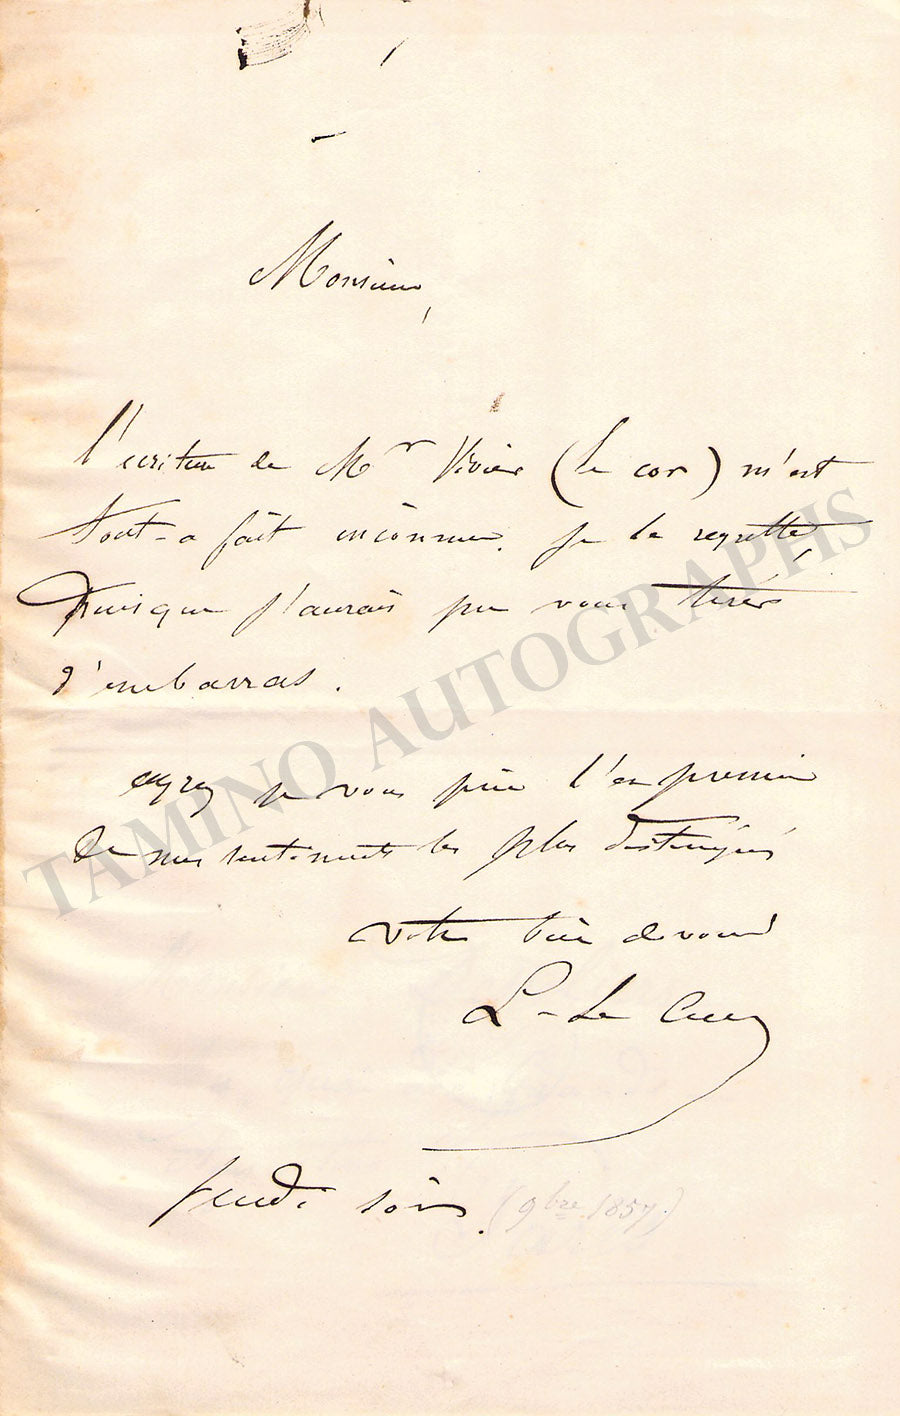 Monsieur,
l'écriture de Mr Vivier (le cor) m'est
tout-a fait inconnue. Je le regrette
puisque j'aurais pu vous tirer
d'embarras.
agréez je vous prie l'expression
de mes sentiments les plus distingués
votre bien devoué
L. Le
Jeudi soir. (9bre 1857)
TAMINO AUTOGRAPHS